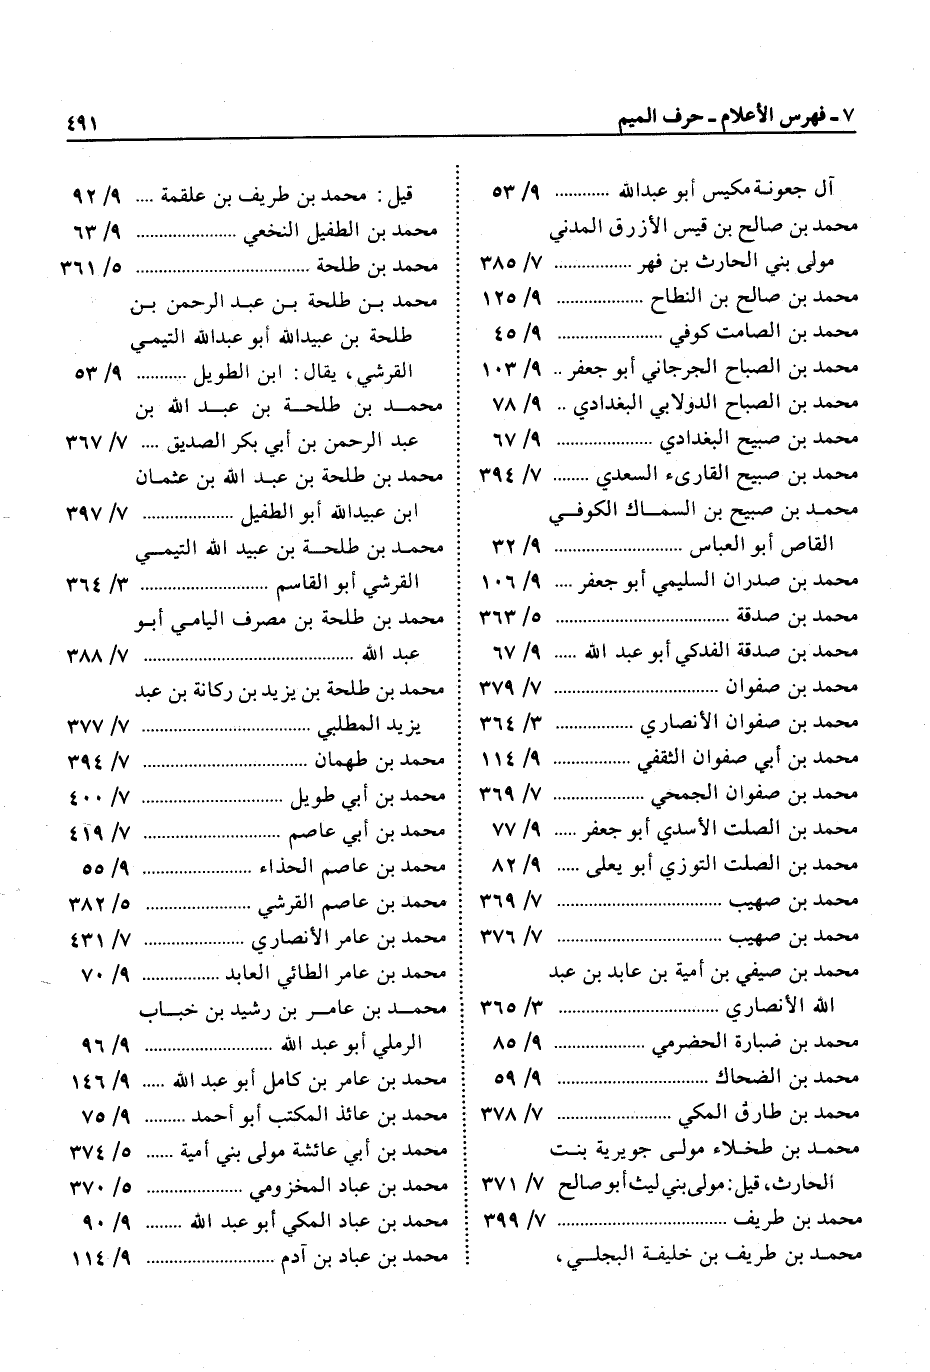 ٧ - فهرس الأعلام - حرف الميم
٤٩١
آل جعونة مكيس أبو عبدالله ............ ٩/ ٥٣
محمد بن صالح بن قيس الأزرق المدني
مولى بني الحارث بن فهر ................. ٧/ ٣٨٥
محمد بن صالح بن النطاح ................... ٩/ ١٢٥
محمد بن الصامت كوفي ....................... ٩/ ٤٥
محمد بن الصباح الجرجاني أبو جعفر .. ٩/ ١٠٣
محمد بن الصباح الدولابي البغدادي .. ٩/ ٧٨
محمد بن صبيح البغدادي ..................... ٩/ ٦٧
محمد بن صبيح القارىء السعدي ........ ٧/ ٣٩٤
محمد بن صبيح بن السماك الكوفي
القاص أبو العباس ............................ ٩/ ٣٢
محمد بن صدران السليمي أبو جعفر .... ٩/ ١٠٦
محمد بن صدقة ...................................... ٥/ ٣٦٣
محمد بن صدقة الفدكي أبو عبد الله ..... ٩/ ٦٧
محمد بن صفوان .................................... ٧/ ٣٧٩
محمد بن صفوان الأنصاري ................. ٣/ ٣٦٤
محمد بن أبي صفوان الثقفي ................. ٩/ ١١٤
محمد بن صفوان الجمحي .................... ٧/ ٣٦٩
محمد بن الصلت الأسدي أبو جعفر ..... ٩/ ٧٧
محمد بن الصلت التوزي أبو يعلى ..... ٩/ ٨٢
محمد بن صهيب .................................... ٧/ ٣٦٩
محمد بن صهيب .................................... ٧/ ٣٧٦
محمد بن صيفي بن أمية بن عابد بن عبد
الله الأنصاري ................................... ٣/ ٣٦٥
محمد بن ضبارة الحضرمي .................... ٩/ ٨٥
محمد بن الضحاك ................................. ٩/ ٥٩
محمد بن طارق المكي ......................... ٧/ ٣٧٨
محمد بن طخلاء مولى جويرية بنت
الحارث، قيل: مولى بني ليث أبو صالح ٧/ ٣٧١
محمد بن طريف ..................................... ٧/ ٣٩٩
محمد بن طريف بن خليفة البجلي،
قيل: محمد بن طريف بن علقمة .... ٩/ ٩٢
محمد بن الطفيل النخعي ...................... ٩/ ٦٣
محمد بن طلحة ...................................... ٥/ ٣٦١
محمد بن طلحة بن عبد الرحمن بن
طلحة بن عبيدالله أبو عبدالله التيمي
القرشي، يقال: ابن الطويل ........... ٩/ ٥٣
محمد بن طلحة بن عبد الله بن
عبد الرحمن بن أبي بكر الصديق .... ٧/ ٣٦٧
محمد بن طلحة بن عبد الله بن عثمان
ابن عبيدالله أبو الطفيل .................... ٧/ ٣٩٧
محمد بن طلحة بن عبيد الله التيمي
القرشي أبو القاسم ............................ ٣/ ٣٦٤
محمد بن طلحة بن مصرف اليامي أبو
عبد الله ............................................. ٧/ ٣٨٨
محمد بن طلحة بن يزيد بن ركانة بن عبد
يزيد المطلبي ..................................... ٧/ ٣٧٧
محمد بن طهمان .................................... ٧/ ٣٩٤
محمد بن أبي طويل ............................... ٧/ ٤٠٠
محمد بن أبي عاصم .............................. ٧/ ٤١٩
محمد بن عاصم الحذاء ........................ ٩/ ٥٥
محمد بن عاصم القرشي ....................... ٥/ ٣٨٢
محمد بن عامر الأنصاري ..................... ٧/ ٤٣١
محمد بن عامر الطائي العابد ................. ٩/ ٧٠
محمد بن عامر بن رشيد بن خباب
الرملي أبو عبد الله ............................ ٩/ ٩٦
محمد بن عامر بن كامل أبو عبد الله ..... ٩/ ١٤٦
محمد بن عائذ المكتب أبو أحمد ......... ٩/ ٧٥
محمد بن أبي عائشة مولى بني أمية ...... ٥/ ٣٧٤
محمد بن عباد المخزومي ..................... ٥/ ٣٧٠
محمد بن عباد المكي أبو عبد الله ........ ٩/ ٩٠
محمد بن عباد بن آدم ............................ ٩/ ١١٤